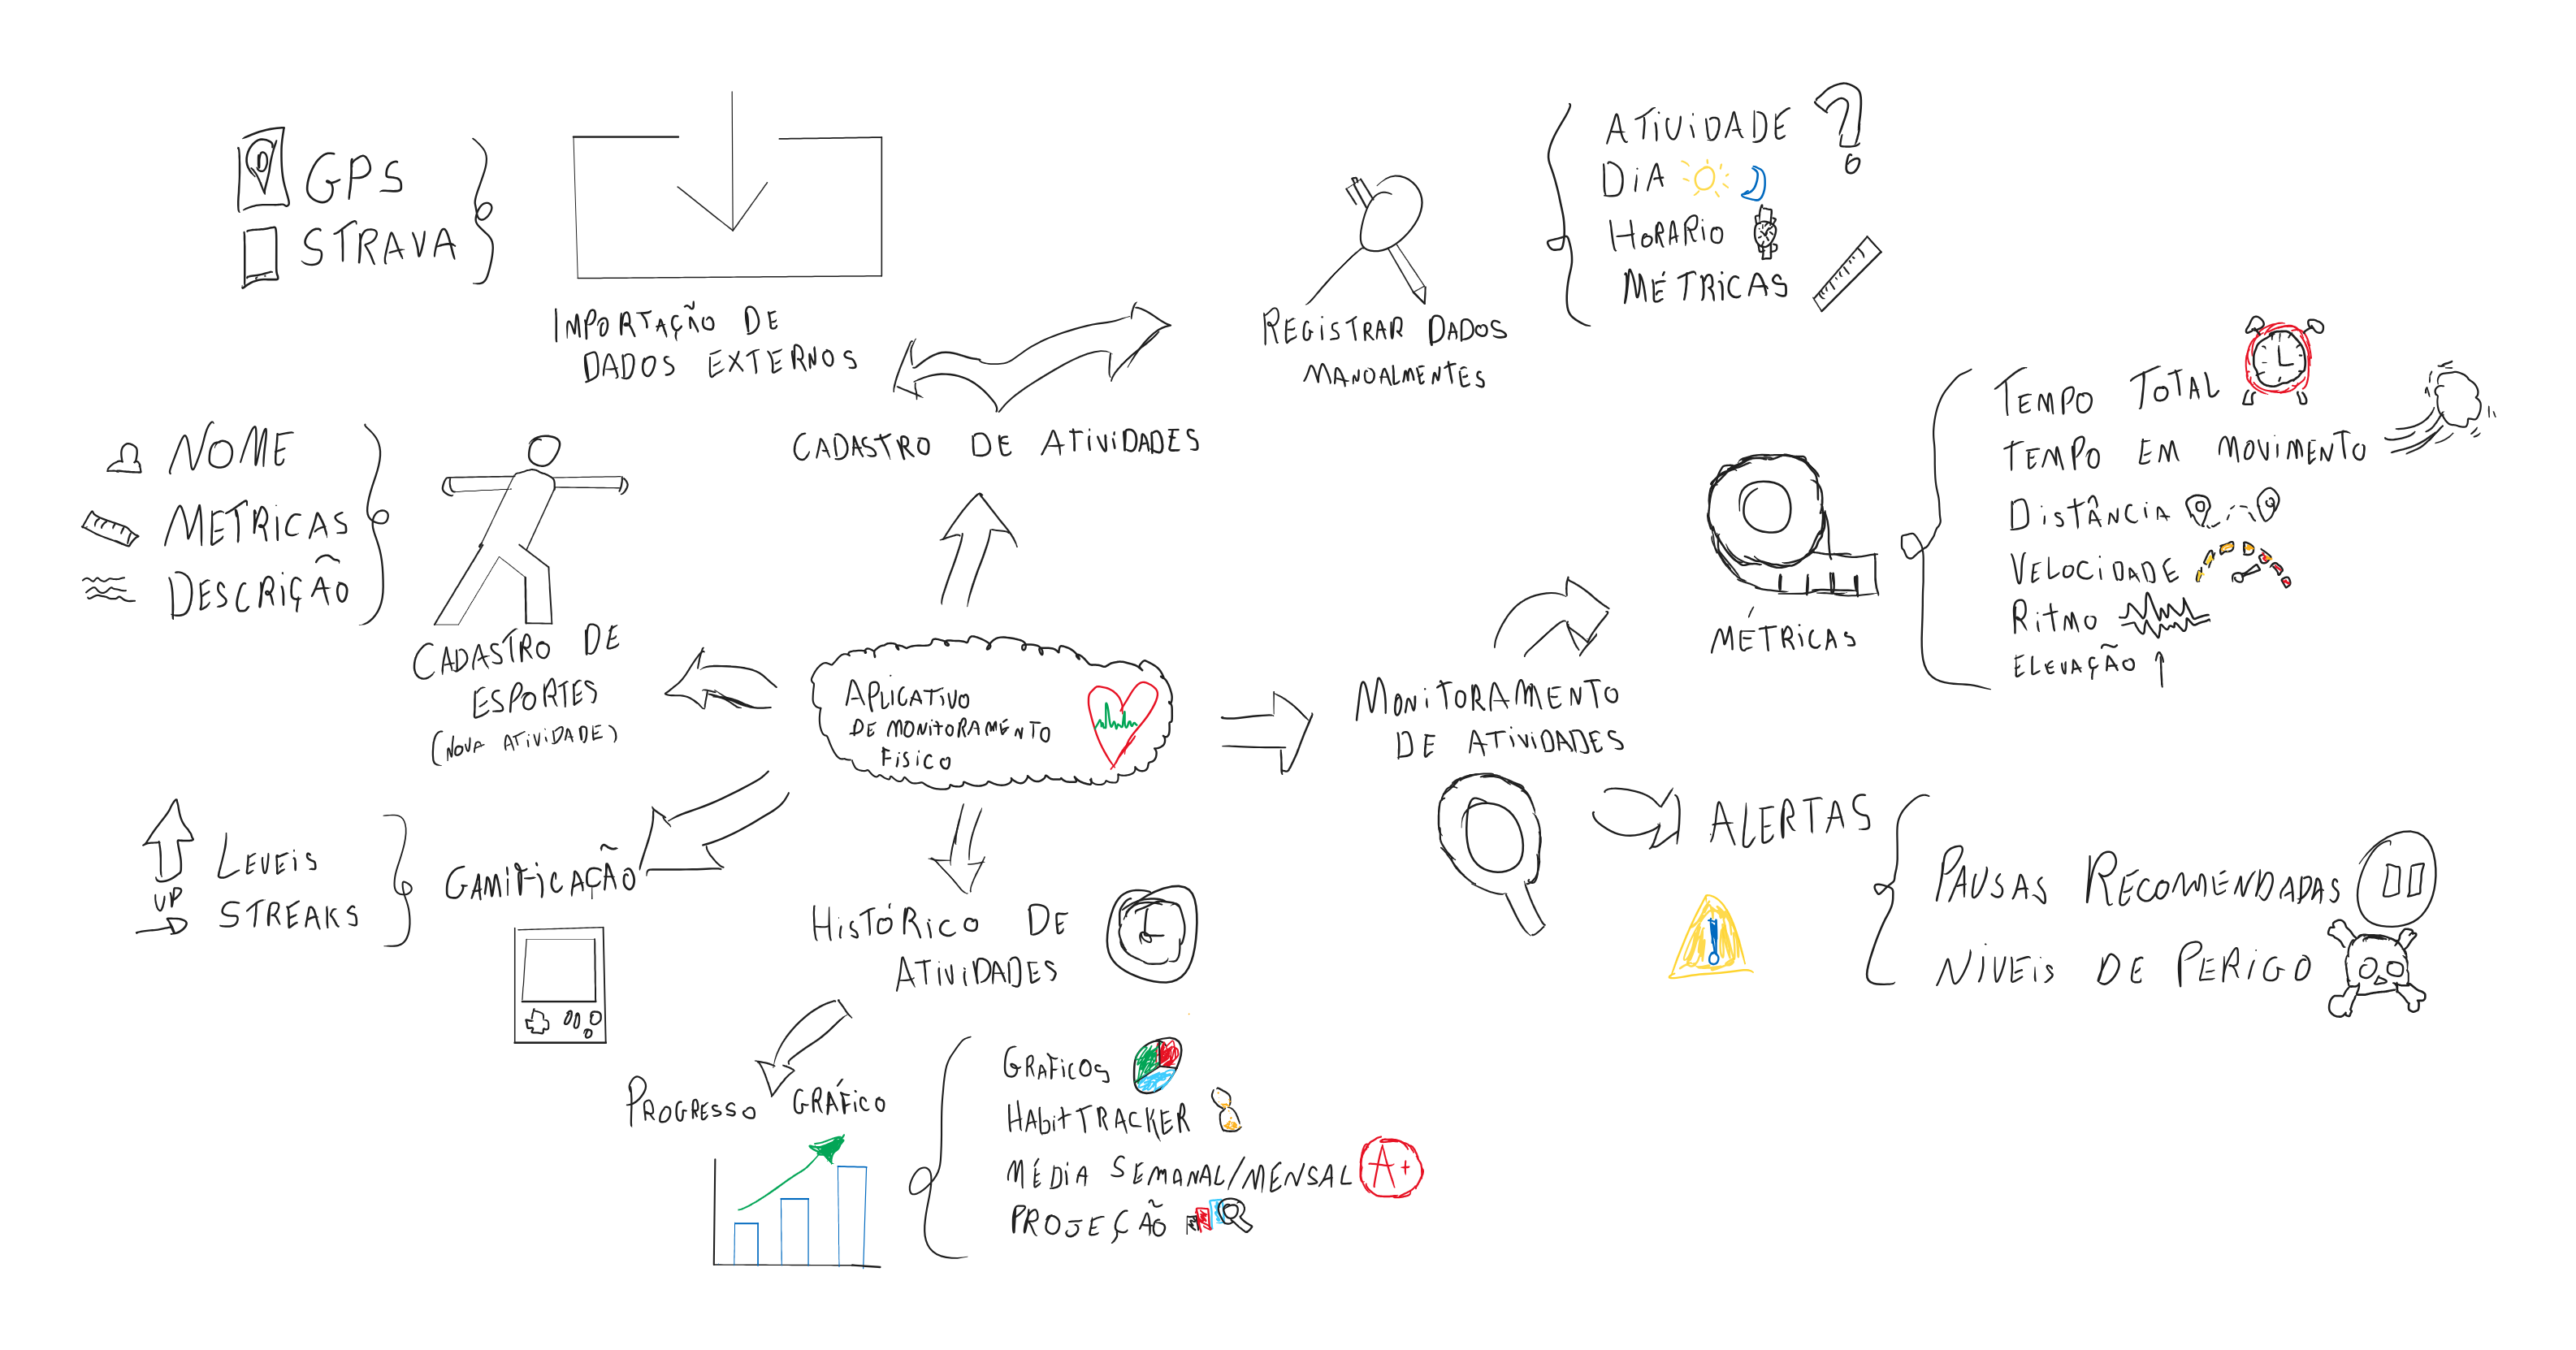 GPS
STRAVA
IMPORTAÇÃO DE
DADOS EXTERNOS
REGISTRAR DADOS
MANOALMENTES
ATIVIDADE
DIA
HORARIO
MÉTRICAS
CADASTRO DE ATIVIDADES
NOME
METRICAS
DESCRIÇÃO
CADASTRO DE
ESPORTES
(NOVA ATIVIDADE)
APLICATIVO
DE MONITORAMENTO
FISICO
MONITORAMENTO
DE ATIVIDADES
MÉTRICAS
TEMPO TOTAL
TEMPO EM MOVIMENTO
DISTÂNCIA
VELOCIDADE
RITMO
ELEVAÇÃO
ALERTAS
PAUSAS RECOMENDADAS
NÍVEIS DE PERIGO
UP
LEVEIS
STREAKS
GAMIFICAÇÃO
HISTÓRICO DE
ATIVIDADES
PROGRESSO GRÁFICO
GRAFICOS
HABITTRACKER
MÉDIA SEMANAL/MENSAL
A+
PROJEÇÃO